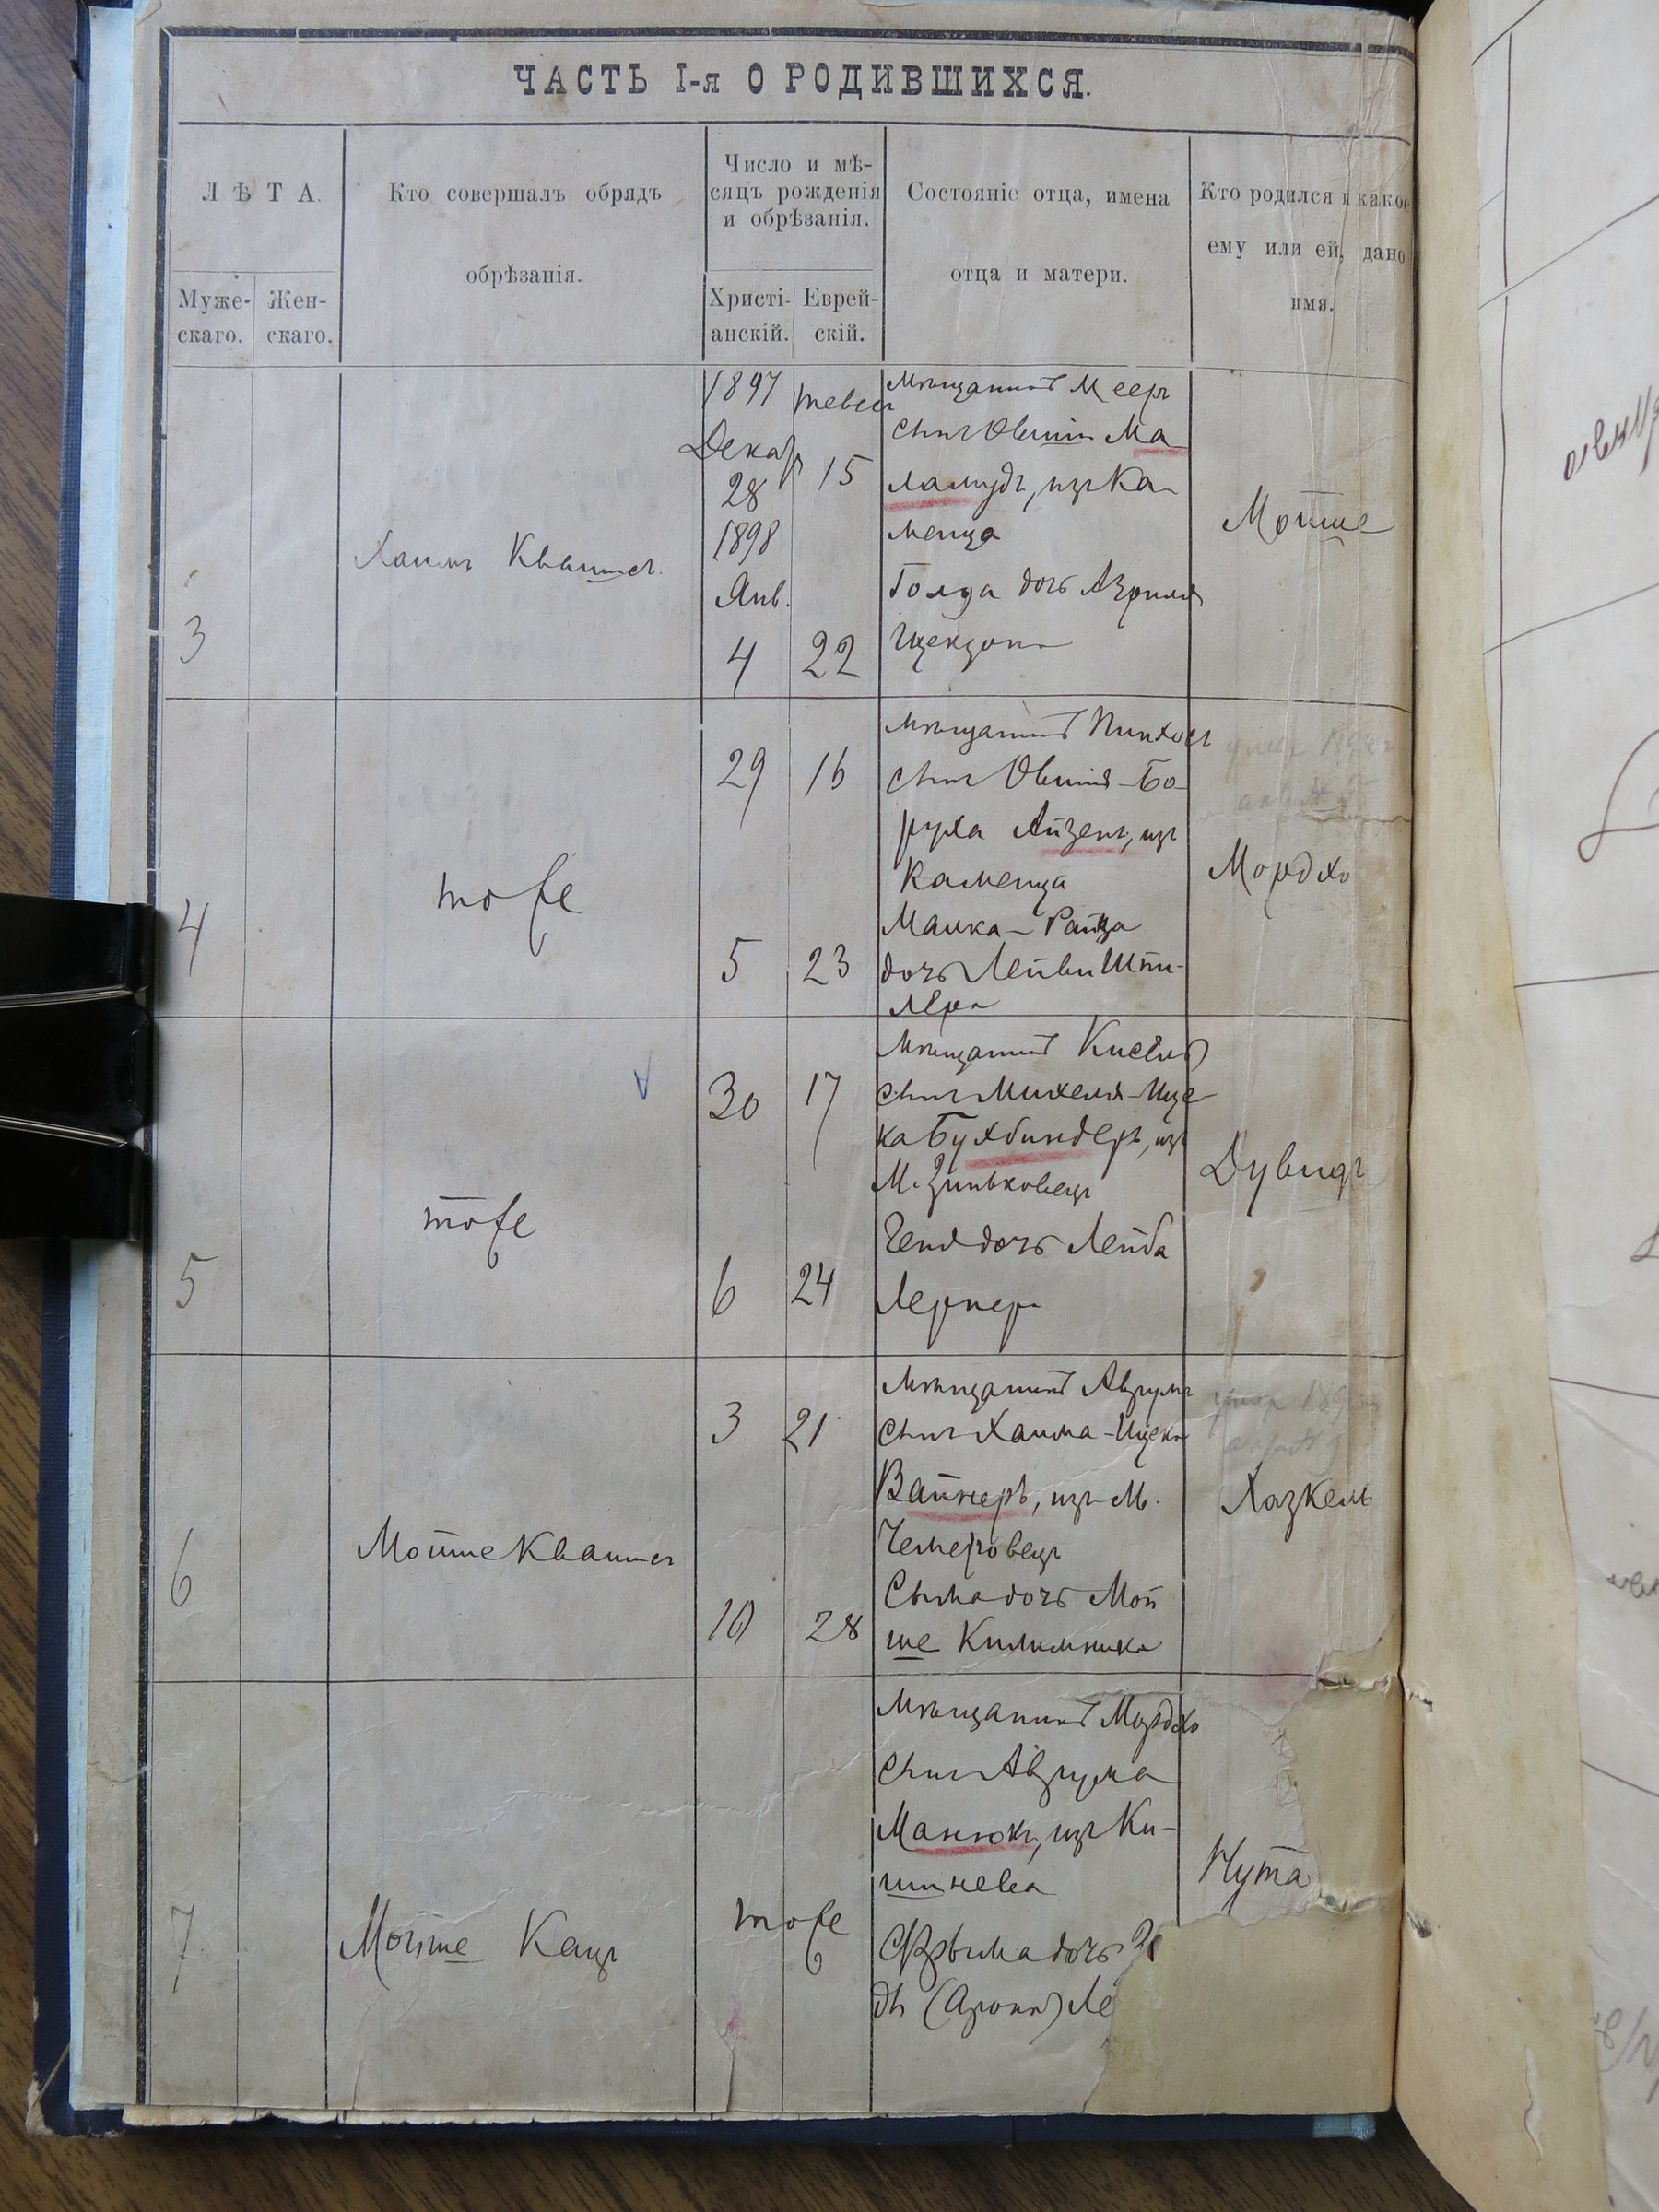 ЧАСТЬ I-я О РОДИВШИХСЯ.
ЛѢТА.
Муже-
скаго.
Жен-
скаго.
Кто совершалъ обрядъ
обрѣзанія.
Число и мѣ-
сяцъ рожденія
и обрѣзанія.
Христі-
анскій.
Еврей-
скій.
Состояніе отца, имена
отца и матери.
Кто родился и какое
ему или ей, дано
имя.
3
Хаимъ Квашнсъ.
1897
Декаб
28
1898
Янв.
4
тевес
15
22
мѣщанинъ Мееръ
сынъ Овшія Ма-
ламудъ, изъ Ка-
менца
Голда дочь Азриля
Мошше
4
тоже
29
5
16
23
мѣщанинъ Пинхосъ
сынъ Овшія-Бо-
руха Айзенъ, изъ
Каменца
Малка-Райза
дочь Лейви Шпи-
лера
Мордхо
5
тоже
30
6
17
24
мѣщанинъ Кисель
сынъ Михеля-Ице-
ка Бухбиндеръ, изъ
М. Зиньковецъ
Геня дочь Лейба
Лернера
Дувидъ
6
Мошше Квашнсъ
3
10
21
28
мѣщанинъ Аврумъ
сынъ Хаима-Ицека
Вайнеръ, изъ М.
Чемеровецъ
Сыма дочь Мой
ше Килимника
Хазкель
7
Мойше Кацъ
тоже
мѣщанинъ Мордхо
сынъ Аврума
Манюкъ, изъ Ки-
шинева
дочь
(Арона) Ле
Нута